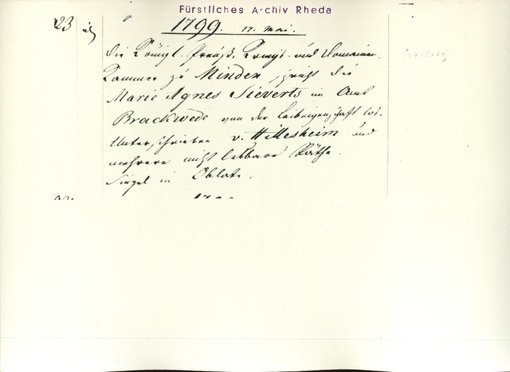 Fürstliches Archiv Rheda
23
1799. 17. Mai.
Die Königl. Preuß. Kriegs- und Domainen-
Kammer zu Minden, spricht die
Marie Agnes Sieverts im Amt
Brackwede von der Leibeigenschaft los.
Unterschrieben v. Hillesheim und
mehrere nicht lesbare Räthe.
Siegel in Oblate.